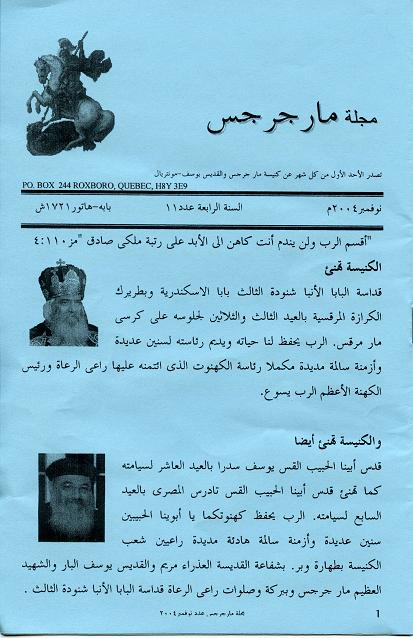 مجلة مار جرجس
تصدر الأحد الأول من كل شهر عن كنيسة مار جرجس والقديس يوسف-مونتريال
PO. BOX 244 ROXBORO, QUEBEC, H8Y 3E9
نوفمبر٢٠٠٤م السنة الرابعة عدد١١ بابه-هاتور١٧٢١ش
"أقسم الرب ولن يندم أنت كاهن الى الأبد على رتبة ملكى صادق "مز١١٠:٤
الكنيسة تهنئ
قداسة البابا الأنبا شنودة الثالث بابا الاسكندرية وبطريرك
الكرازة المرقسية بالعيد الثالث والثلاثين لجلوسه على كرسى
مار مرقس. الرب يحفظ لنا حياته ويديم رئاسته لسنين عديدة
وأزمنة سالمة مديدة مكملا رئاسة الكهنوت الذى ائتمنه عليها راعى الرعاة ورئيس
الكهنة الأعظم الرب يسوع.
والكنيسة تهنئ أيضا
قدس أبينا الحبيب القس يوسف سدرا بالعيد العاشر لسيامته
كما تهنئ قدس أبينا الحبيب القس تادرس المصرى بالعيد
السابع لسيامته. الرب يحفظ كهنوتكما يا أبوينا الحبيبين
سنين عديدة وأزمنة سالمة هادئة مديدة راعيين شعب
الكنيسة بطهارة وبر. بشفاعة القديسة العذراء مريم والقديس يوسف البار والشهيد
العظيم مار جرجس وببركة وصلوات راعى الرعاة قداسة البابا الأنبا شنودة الثالث .
مجلة مارجرجس عدد نوفمبر٢٠٠٤ 1